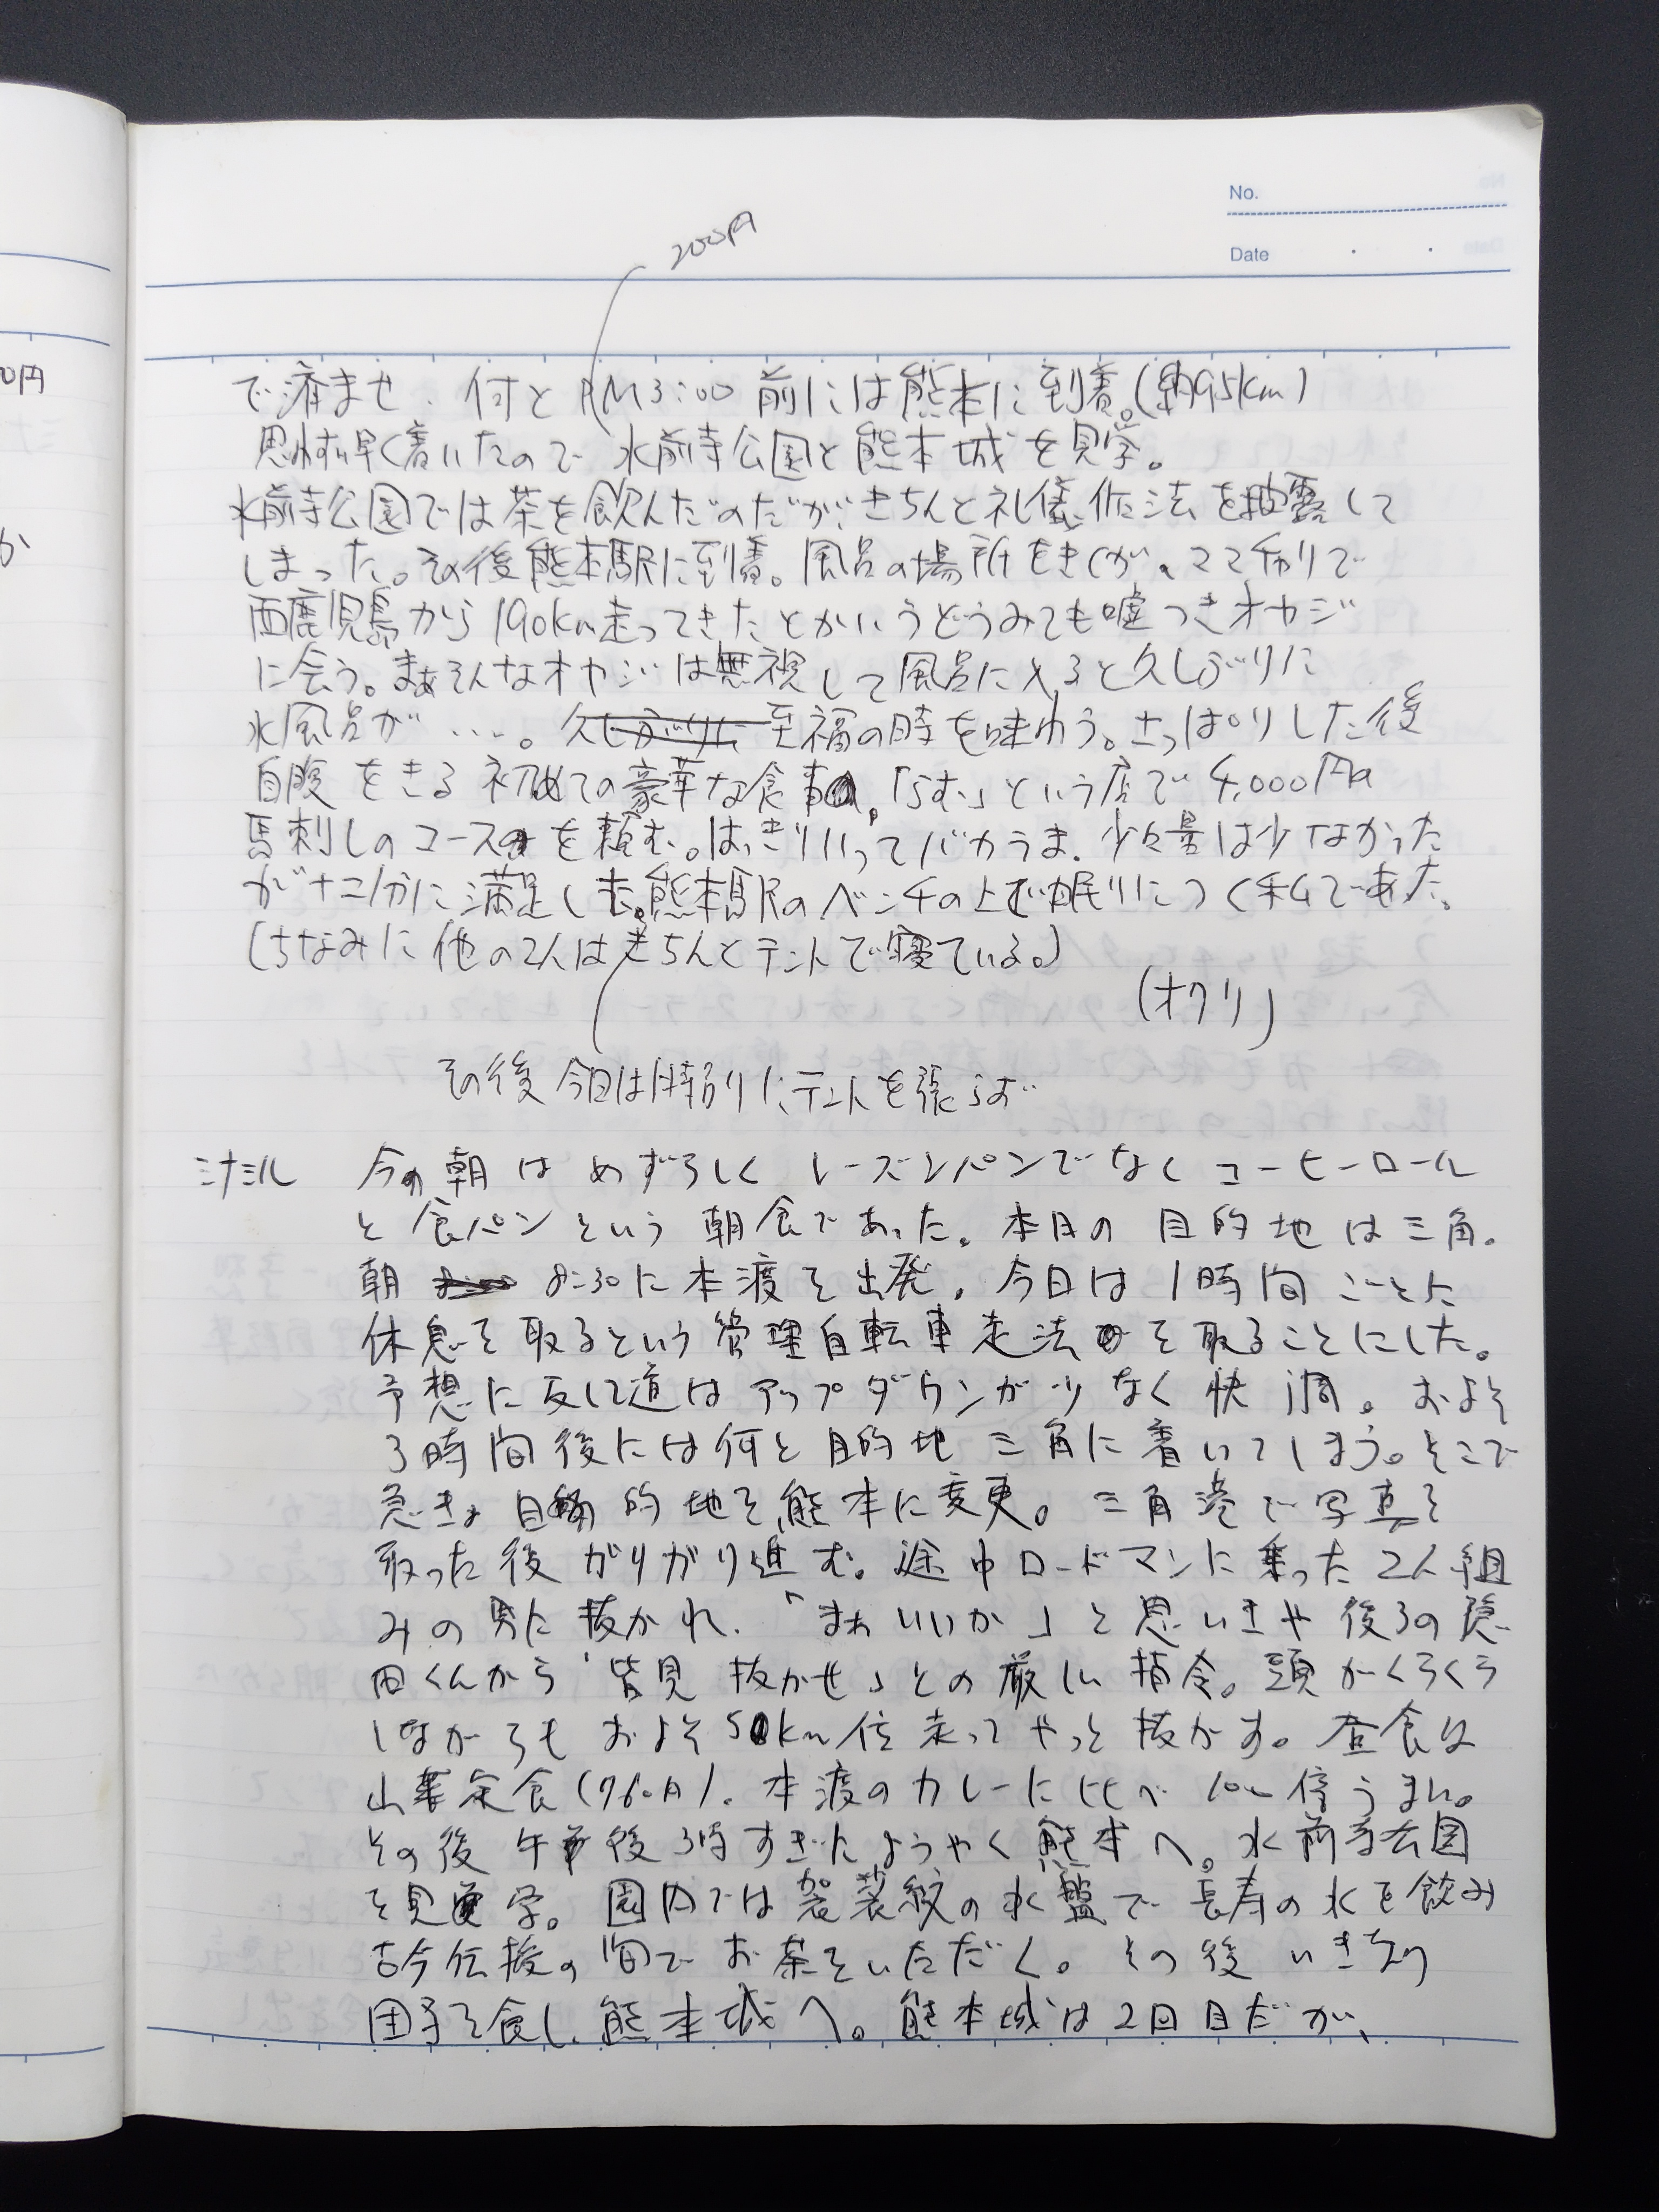 No.
Date
200円
0円
か
で済ませ、何とPM3:00前には熊本に到着。(約95km)
思わず早く着いたので水前寺公園と熊本城を見学。
水前寺公園では茶を飲んだのだが、きちんと礼儀作法を披露して
しまった。その後熊本駅に到着。風呂の場所をきくが、ママチャリで
西鹿児島から190km走ってきたとかいうどうみても嘘つきオヤジ
に会う。まぁそんなオヤジは無視して風呂に入ると久しぶりに
水風呂が・・・。至福の時を味わう。さっぱりした後
自腹をきる初めての豪華な食事。「らむ」という店で4,000円の
馬刺しのコースを頼む。はっきりいってバカうま。少々量は少なかった
が十二分に満足した。熊本駅のベンチの上で眠りにつく私であった。
(ちなみに他の2人はきちんとテントで寝ている。)
(オクリ)
その後今日は特別にテントを張らず
ミナミル 今朝はめずらしくレーズンパンでなくコーヒーロール
と食パンという朝食であった。本日の目的地は三角。
朝 8:30に本渡を出発。今日は1時間ごとに
休息を取るという管理自転車走法を取ることにした。
予想に反して道はアップダウンが少なく快調。およそ
3時間後には何と目的地三角に着いてしまう。そこで
急きょ目的地を熊本に変更。三角港で写真を
取った後がりがり進む。途中ロードマンに乗った2人組
みの男に抜かれ、「まぁいいか」と思いきや後ろの隠
田くんから「皆見抜かせ」との厳しい指令。頭がくらくら
しながらもおよそ5km位走ってやっと抜かす。昼食は
山菜定食(760円)。本渡のカレーに比べ100倍うまい。
その後午後3時すぎにようやく熊本へ。水前寺公園
を見学。園内では袈裟紋の水盤で長寿の水を飲み
古今伝授の間でお茶をいただく。その後いきなり
団子を食し、熊本城へ。熊本城は2回目だが、